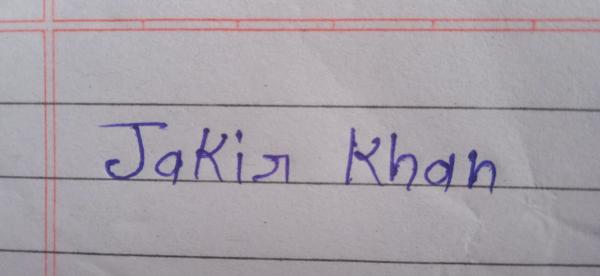 Jakir Khan